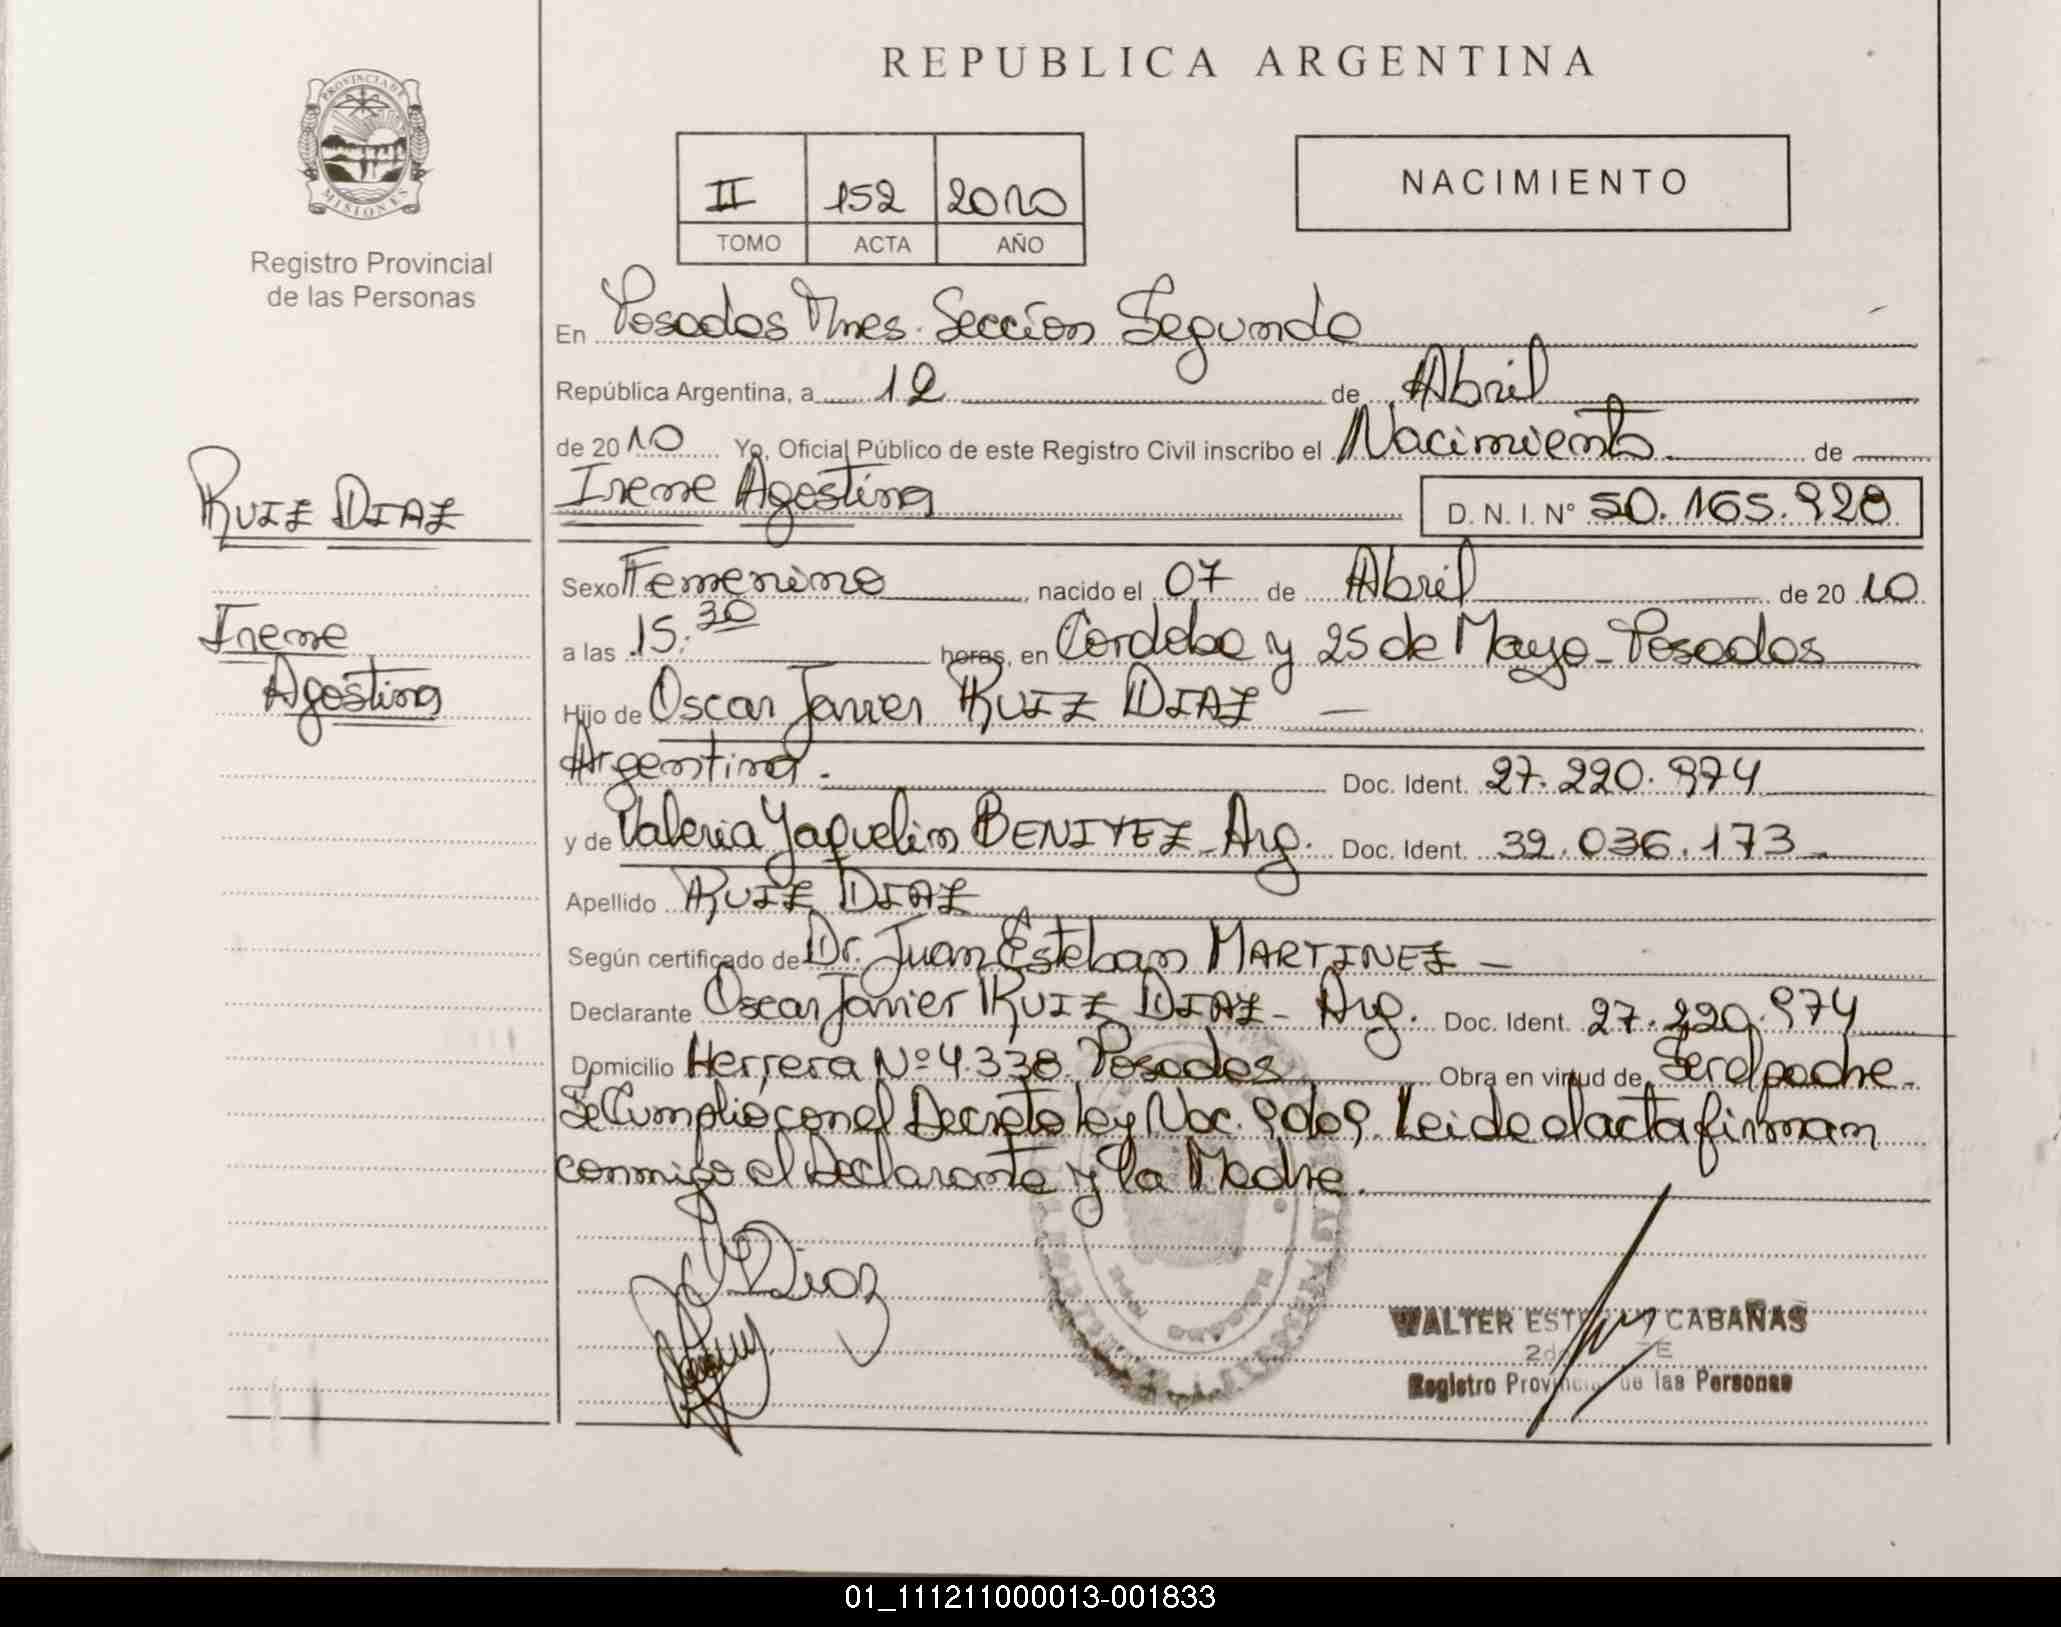 REPUBLICA ARGENTINA
PROVINCIA DE
MISIONES
Registro Provincial
de las Personas
II 152 2010
TOMO ACTA AÑO
NACIMIENTO
En Posadas Mnes. Sección Segunda
República Argentina, a 12 de Abril
de 2010 Yo, Oficial Público de este Registro Civil inscribo el Nacimiento de
Irene Agostina D. N. I. N° 50.165.928
RUIZ DIAZ
Irene
Agostina
Sexo Femenino nacido el 07 de Abril de 2010
a las 15.30 horas, en Cordoba y 25 de Mayo - Posadas
Hijo de Oscar Javier RUIZ DIAZ —
Argentina. Doc. Ident. 27.220.974
y de Valeria Yaquelin BENITEZ - Arg. Doc. Ident. 39.036.173
Apellido RUIZ DIAZ
Según certificado de Dr. Juan Esteban MARTINEZ —
Declarante Oscar Javier RUIZ DIAZ - Arg. Doc. Ident. 27.220.974
Domicilio Herrera Nº 4.338. Posadas Obra en virtud de Ser el padre.
Se Cumplió con el Decreto ley Nac. 9 Leida el acta firman
conmigo el Declarante y la Madre.
Diaz
WALTER CABAÑAS
Registro Provincial de las Personas
01_111211000013-001833